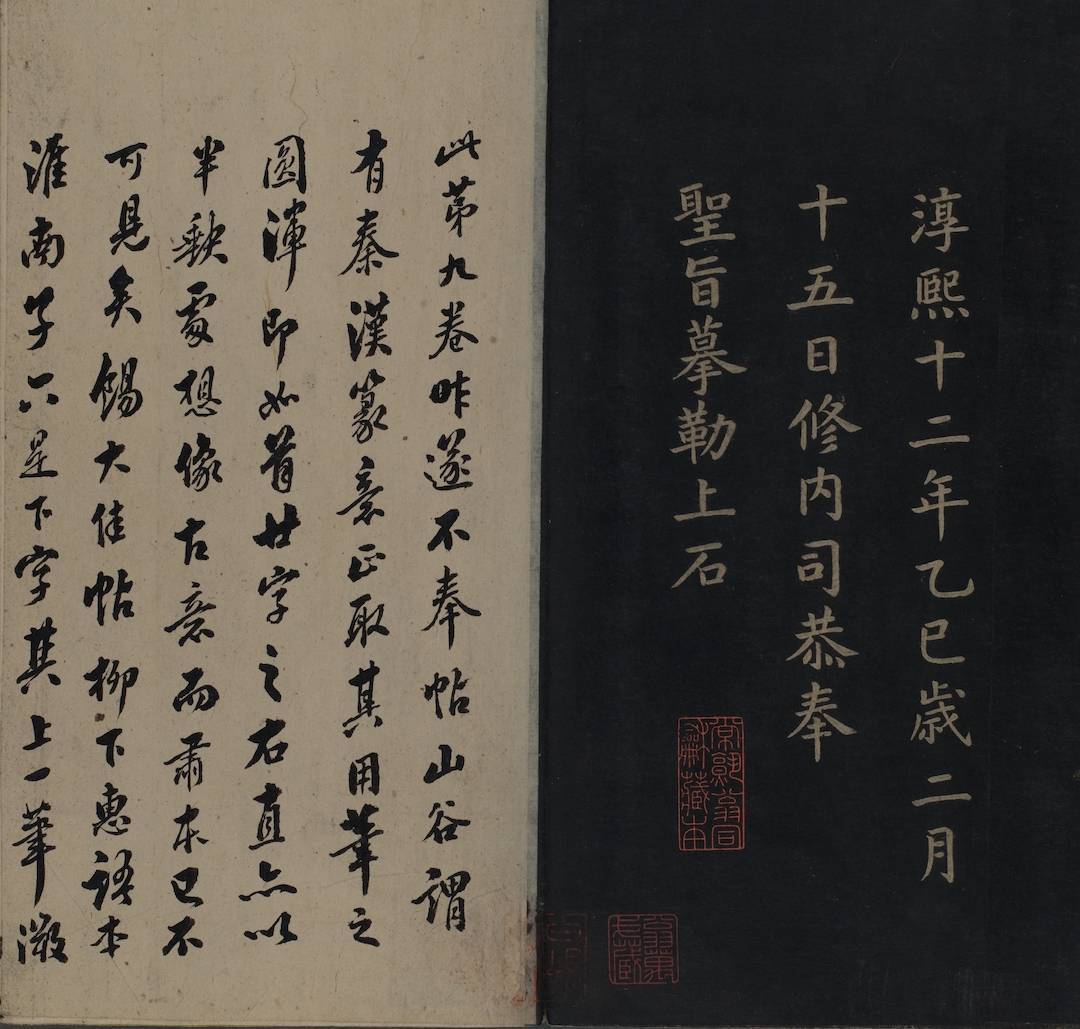 淳熙十二年乙巳歲二月
十五日修内司恭奉
聖旨摹勒上石
常熟翁同
龢藏本
此第九卷昨遂不奉帖山谷謂
有秦漢篆意正取其用筆之
圓渾即如首廿字之右直亦以
半缺處想像古意而肅本已不
可見矣餳大佳帖柳下惠語本
淮南子亦是下字其上一筆